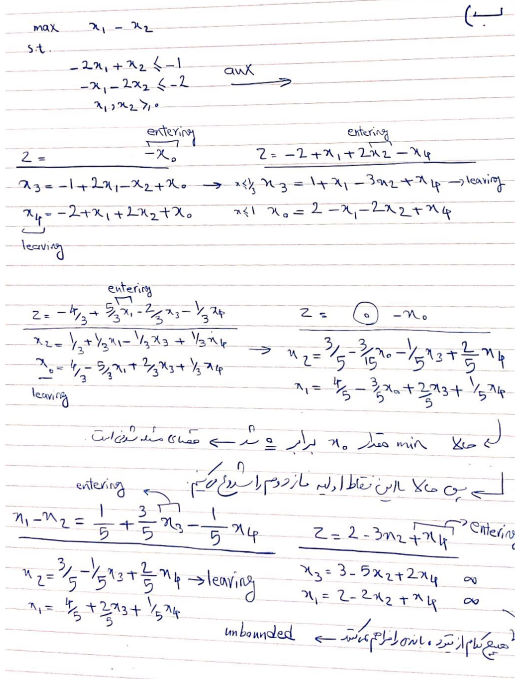 ب)
max x₁ - x₂
s.t.
-2x₁ + x₂ ≤ -1
-x₁ - 2x₂ ≤ -2
x₁, x₂ ≥ 0
aux →
entering
z = -x₀
x₃ = -1 + 2x₁ - x₂ + x₀ →
x₄ = -2 + x₁ + 2x₂ + x₀
leaving
entering
z = -2 + x₁ + 2x₂ - x₄
x≤1/3 x₃ = 1 + x₁ - 3x₂ + x₄ → leaving
x≤1 x₀ = 2 - x₁ - 2x₂ + x₄
entering
z = -4/3 + 5/3 x₁ - 2/3 x₃ - 1/3 x₄
x₂ = 1/3 + 1/3 x₁ - 1/3 x₃ + 1/3 x₄
x₀ = 4/3 - 5/3 x₁ + 2/3 x₃ + 1/3 x₄
leaving
→
z = 0 - x₀
x₂ = 3/5 - 3/15 x₀ - 1/5 x₃ + 2/5 x₄
x₁ = 4/5 - 3/5 x₀ + 2/5 x₃ + 1/5 x₄
حالا min مقدار x₀ برابر 0 شد ← فضای شدنی است
پس حالا با این نقاط اولیه فاز دوم را شروع می‌کنیم:
entering
x₁ - x₂ = 1/5 + 3/5 x₃ - 1/5 x₄
x₂ = 3/5 - 1/5 x₃ + 2/5 x₄ → leaving
x₁ = 4/5 + 2/5 x₃ + 1/5 x₄
Entering
z = 2 - 3x₂ + x₄
x₃ = 3 - 5x₂ + 2x₄ ∞
x₁ = 2 - 2x₂ + x₄ ∞
هیچ کدام از قیود باند را فراهم نمی‌کنند ← unbounded